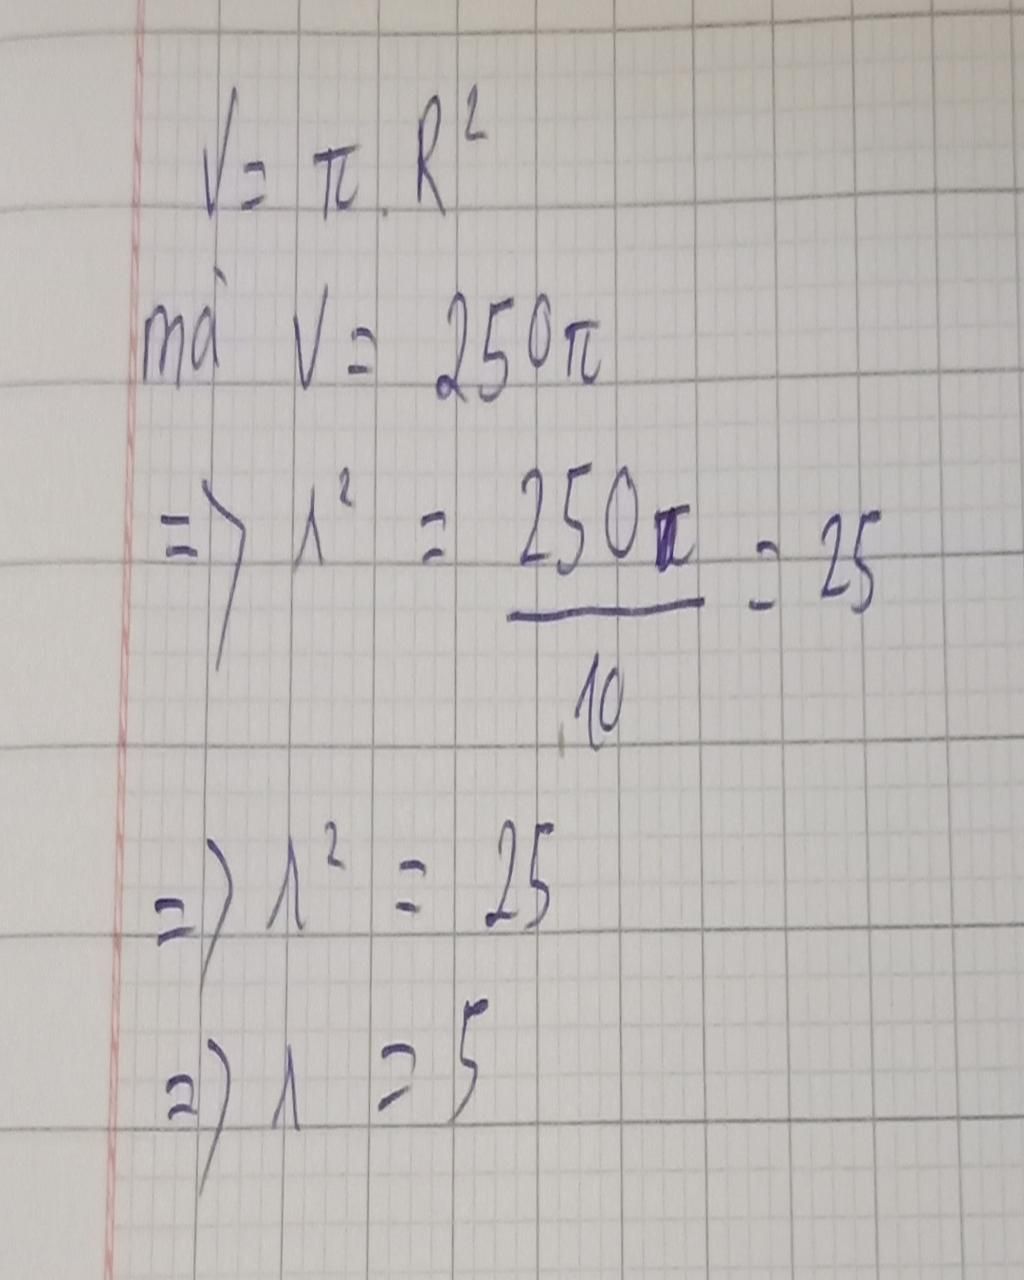 V = π . R²
mà V = 250π
=> r² = 250π / 10 = 25
=> r² = 25
=> r = 5